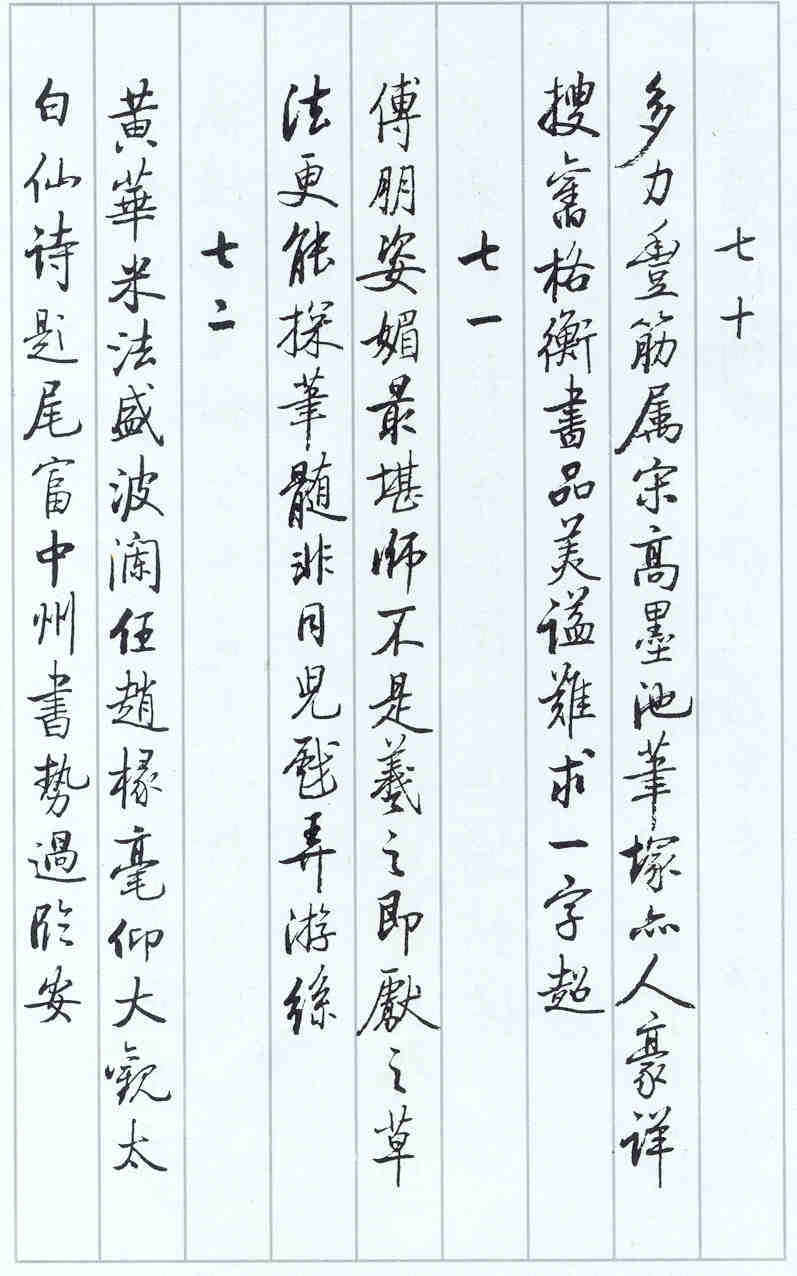 七十
多力豐筋属宋高墨池筆塚亦人豪详
搜舊格衡書品美谥難求一字超
七一
傅朋姿媚最堪師不是羲之即獻之草
法更能探筆髓非同兒戲弄游絲
七二
黄華米法盛波瀾任趙椽毫仰大觀太
白仙诗題尾富中州書勢過臨安